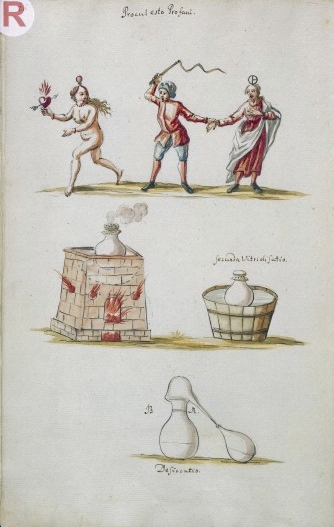 R
Procul este Profani.
secunda Vitri distatio.
B A.
Desiccatio.